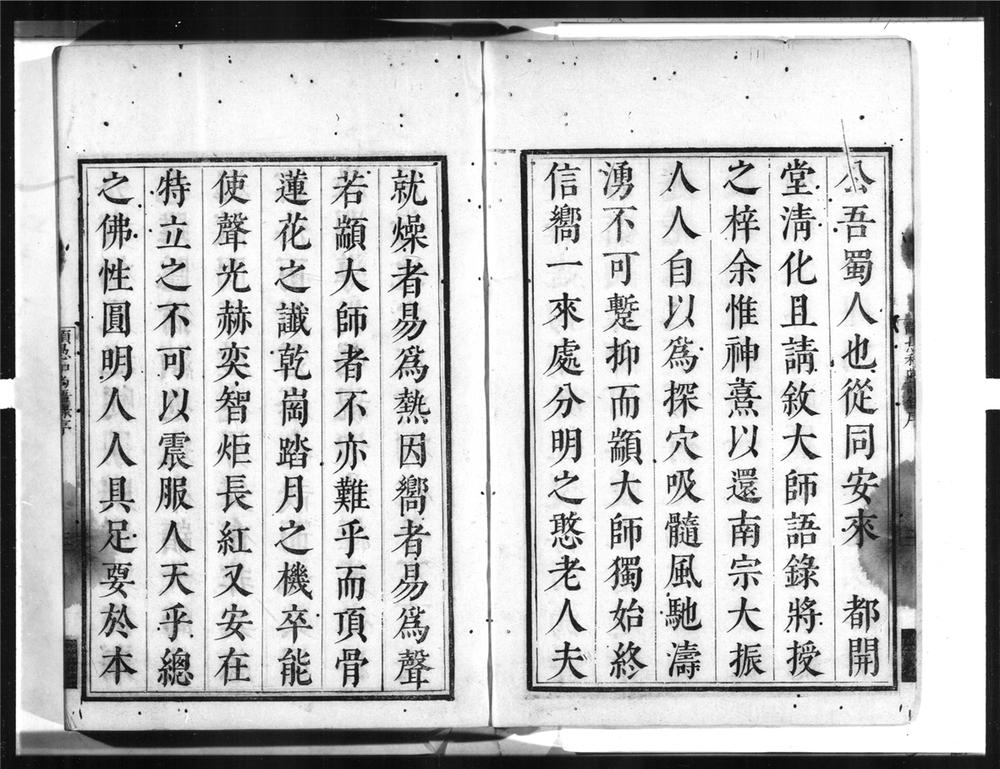 公吾蜀人也從同安來　都開
堂淸化且請敘大師語錄將授
之梓余惟神熹以還南宗大振
人人自以爲探穴吸髓風馳濤
湧不可蹔抑而顓大師獨始終
信嚮一來處分明之憨老人夫
就燥者易爲熱因嚮者易爲聲
若顓大師者不亦難乎而頂骨
蓮花之讖乾崗踏月之機卒能
使聲光赫奕智炬長紅又安在
特立之不可以震服人天乎總
之佛性圓明人人具足要於本